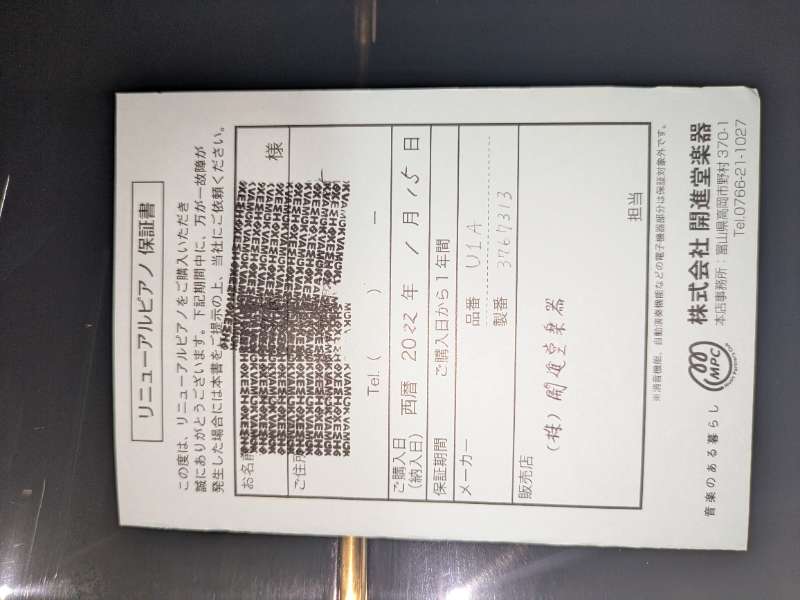 リニューアルピアノ保証書
この度は、リニューアルピアノをご購入いただき
誠にありがとうございます。下記期間中に、万が一故障が
発生した場合には本書をご提示の上、当社にご依頼ください。
お名前 様
ご住所
Tel. ( ) －
ご購入日
(納入日) 西暦 2022 年 1 月 15 日
保証期間 ご購入日から1年間
メーカー 品番 U1A
製番 3767313
販売店
(株) 開進堂楽器
担当
※消音機能、自動演奏機能などの電子機器部分は保証対象外です。
音楽のある暮らし MPC 株式会社 開進堂楽器
本店事務所：富山県高岡市野村370-1
Tel.0766-21-1027